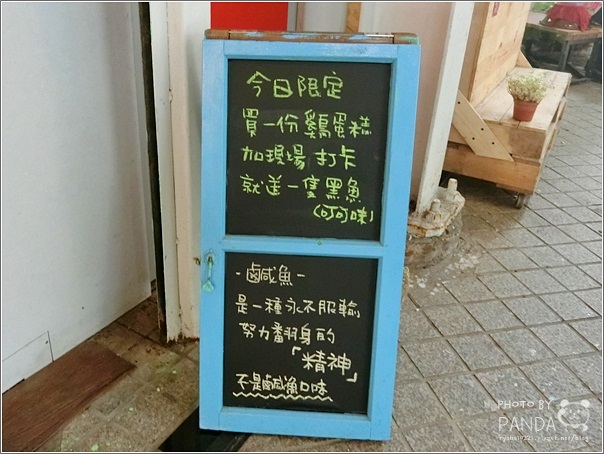 今日限定
買一份雞蛋糕
加現場打卡
就送一隻黑魚
(叮叮味)
-鹹魚-
是一種永不服輸
努力翻身的
「精神」
不是鹹魚口味
PHOTO BY
PANDA